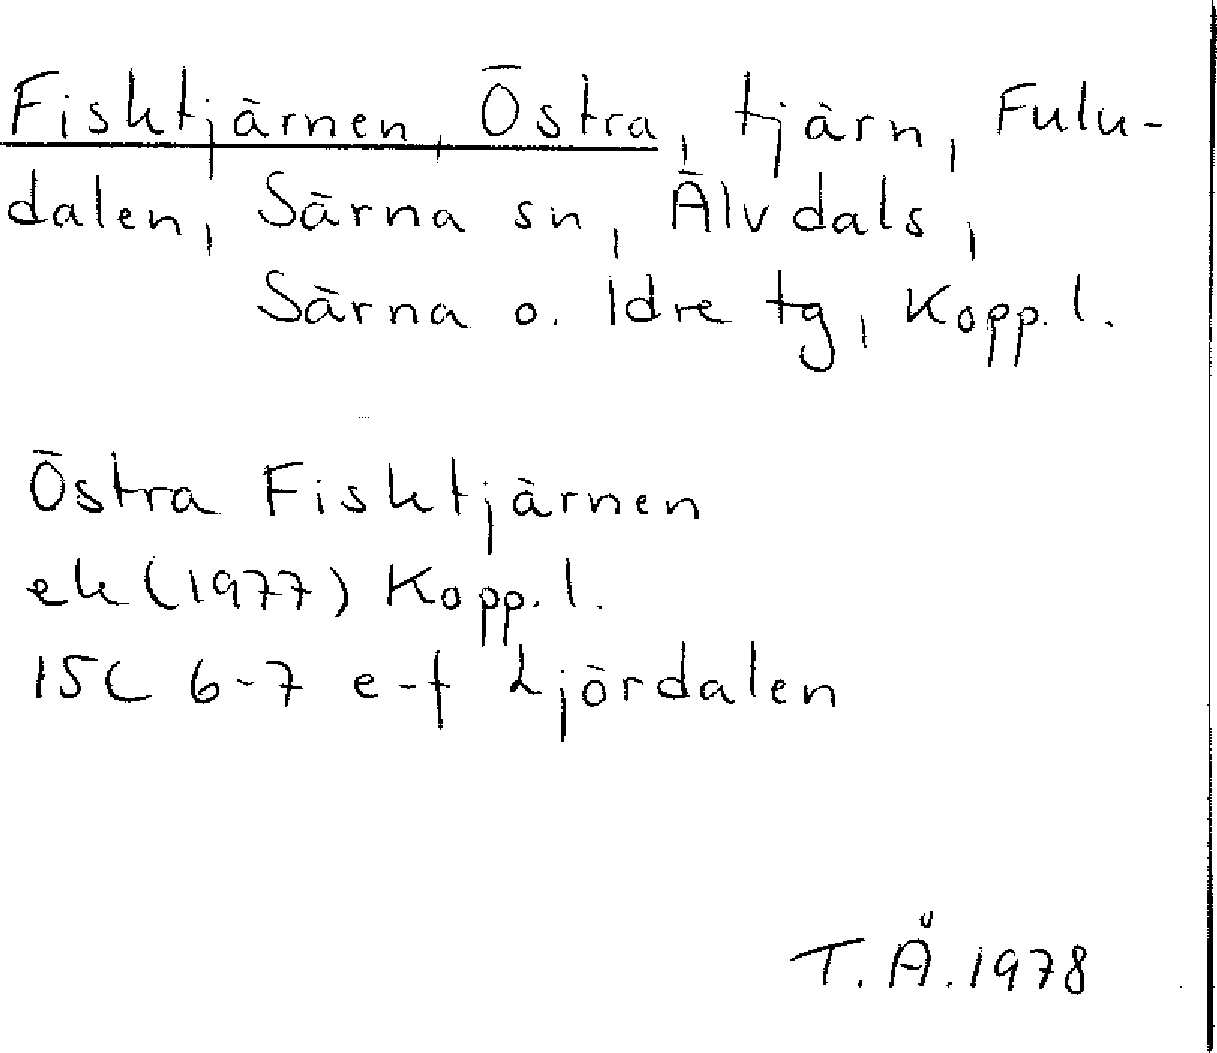 Fisktjärnen, Östra, tjärn, Fulu-
dalen, Särna sn, Älvdals,
Särna o. Idre tg, Kopp. l.
Östra Fisktjärnen
ek (1977) Kopp. l.
15C 6-7 e-f Ljördalen
T. Å. 1978